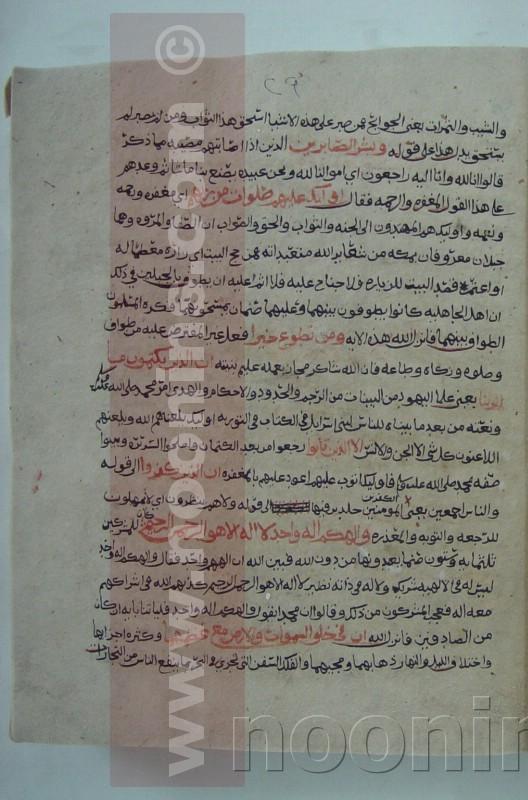 ٢٩
والشيب والثمرات يعني الجوايح فمن صبر على هذه الاشياء استحق هذا الثواب ومن لم يصبر لم
يستحق يدل هذا على قوله وبشر الصابرين الذين اذا اصابتهم مصيبة مما ذكر
قالوا انا لله وانا اليه راجعون اي اموالنا لله ونحن عبيده يصنع بنا ما شاء وعدهم
على هذا القول المغفرة والرحمة فقال اوليك عليهم صلوات من ربهم اي مغفرة ورحمة
ونعمة واوليك هم المهتدون الى الجنة والثواب والحق والصواب ان الصفا والمروة وهما
جبلان معروفان بمكة من شعاير الله متعبداته فمن حج البيت اي زاره معظما له
او اعتمر قصد البيت للزيارة فلا جناح عليه فلا اثم عليه ان يطوف بهما بالجبلين وذلك
ان اهل الجاهلية كانوا يطوفون بينهما وعليهما صنمان يمسحونهما فكره المسلمون
الطواف بينهما فانزل الله هذه الاية ومن تطوع خيرا فعل غير المفترض عليه من طواف
وصلوة وزكاة وطاعة فان الله شاكر مجاز بعمله عليم بنيته ان الذين يكتمون ما
انزلنا يعني علما اليهود من البينات من الرجم والحدود والاحكام والهدى امر محمد صلى الله عليه
ونعته من بعد ما بيناه للناس لبني اسرايل في الكتاب في التورية اوليك يلعنهم الله ويلعنهم
اللاعنون كل شي الا الجن والانس الا الذين تابوا رجعوا من بعد الكتمان واصلحوا السريرة وبينوا
صفة محمد صلى الله عليه فاوليك اتوب عليهم اعود عليهم بالمغفرة ان الذين كفروا الى قوله
والناس اجمعين يعني المومنين خالدين فيها الى قوله ولا هم ينظرون اي لا يمهلون
للرجعة والتوبة والمعذرة والهكم اله واحد لا اله الا هو الرحمن الرحيم كان للمشركين
ثلثماية وستون صنما يعبدونها من دون الله فبين الله ان الههم واحد فقال والهكم اله واحد
ليس له في الالهية شريك ولا له في ذاته نظير لا اله الا هو الرحمن الرحيم كذبهم الله في اشراكهم
معه اله فعجب المشركون من ذلك وقالوا ان محمدا يقول والهكم اله واحد فلياتنا باية ان كان
من الصادقين فانزل الله ان في خلق السموات والارض مع عظمها وكثرة اجزايها
واختلاف الليل والنهار ذهابهما ومجيهما والفلك السفن التي تجري في البحر بما ينفع الناس من التجارات
www. .com ©
noonin